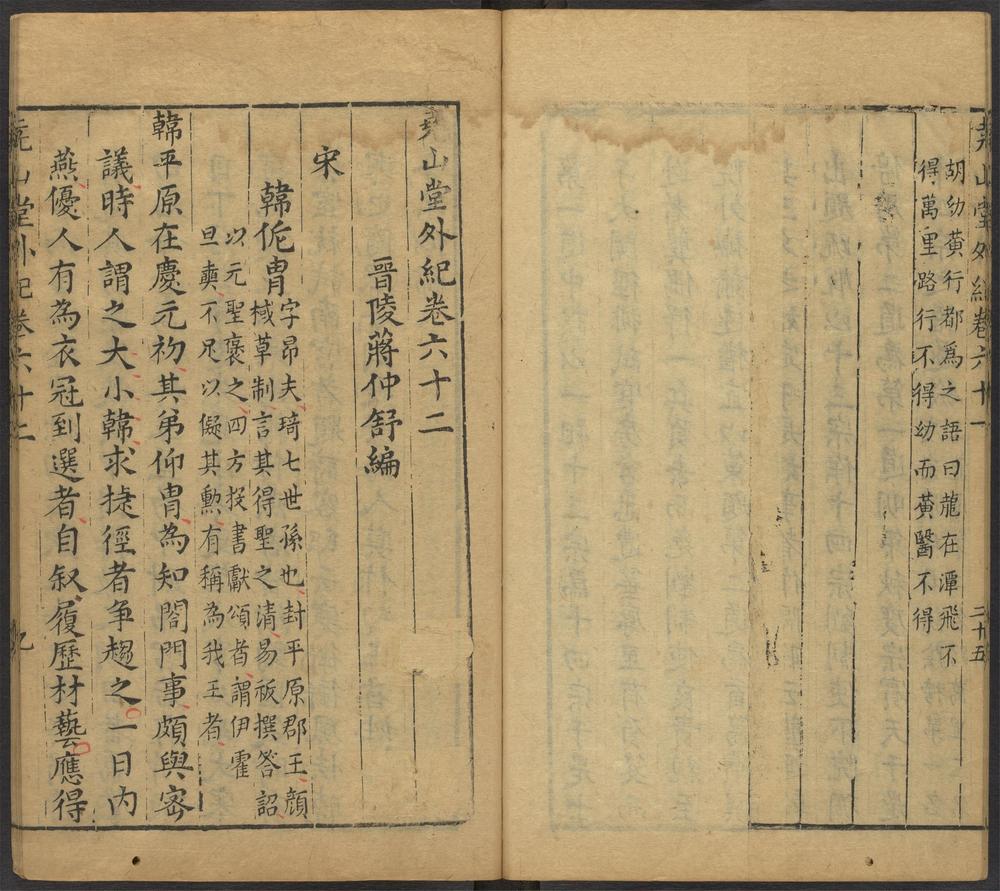 堯山堂外紀卷六十一
二十五
胡幼黄行都爲之語曰龍在潭飛不
得萬里路行不得幼而黃醫不得
堯山堂外紀卷六十二
晉陵蔣仲舒編
宋
韓侂胄字昻夫琦七世孫也封平原郡王顔
棫草制言其得聖之清易袚撰答詔
以元聖褒之四方投書獻頌者謂伊霍
旦奭不足以儗其勲有稱為我王者
韓平原在慶元初其弟仰胄為知閤門事頗與宻
議時人謂之大小韓求捷徑者争趨之一日内
燕優人有為衣冠到選者自叙履歷材藝應得
堯山堂外紀卷六十二